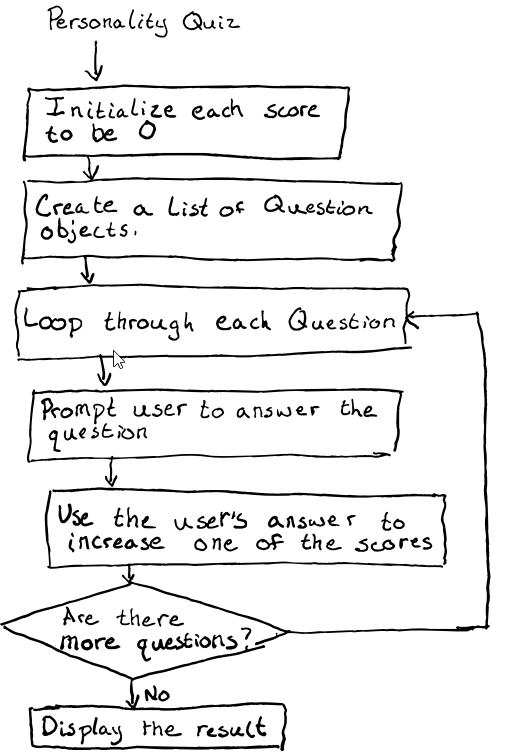 Personality Quiz
Initialize each score
to be 0
Create a List of Question
objects.
Loop through each Question
Prompt user to answer the
question
Use the user's answer to
increase one of the scores
Are there
more questions?
No
Display the result